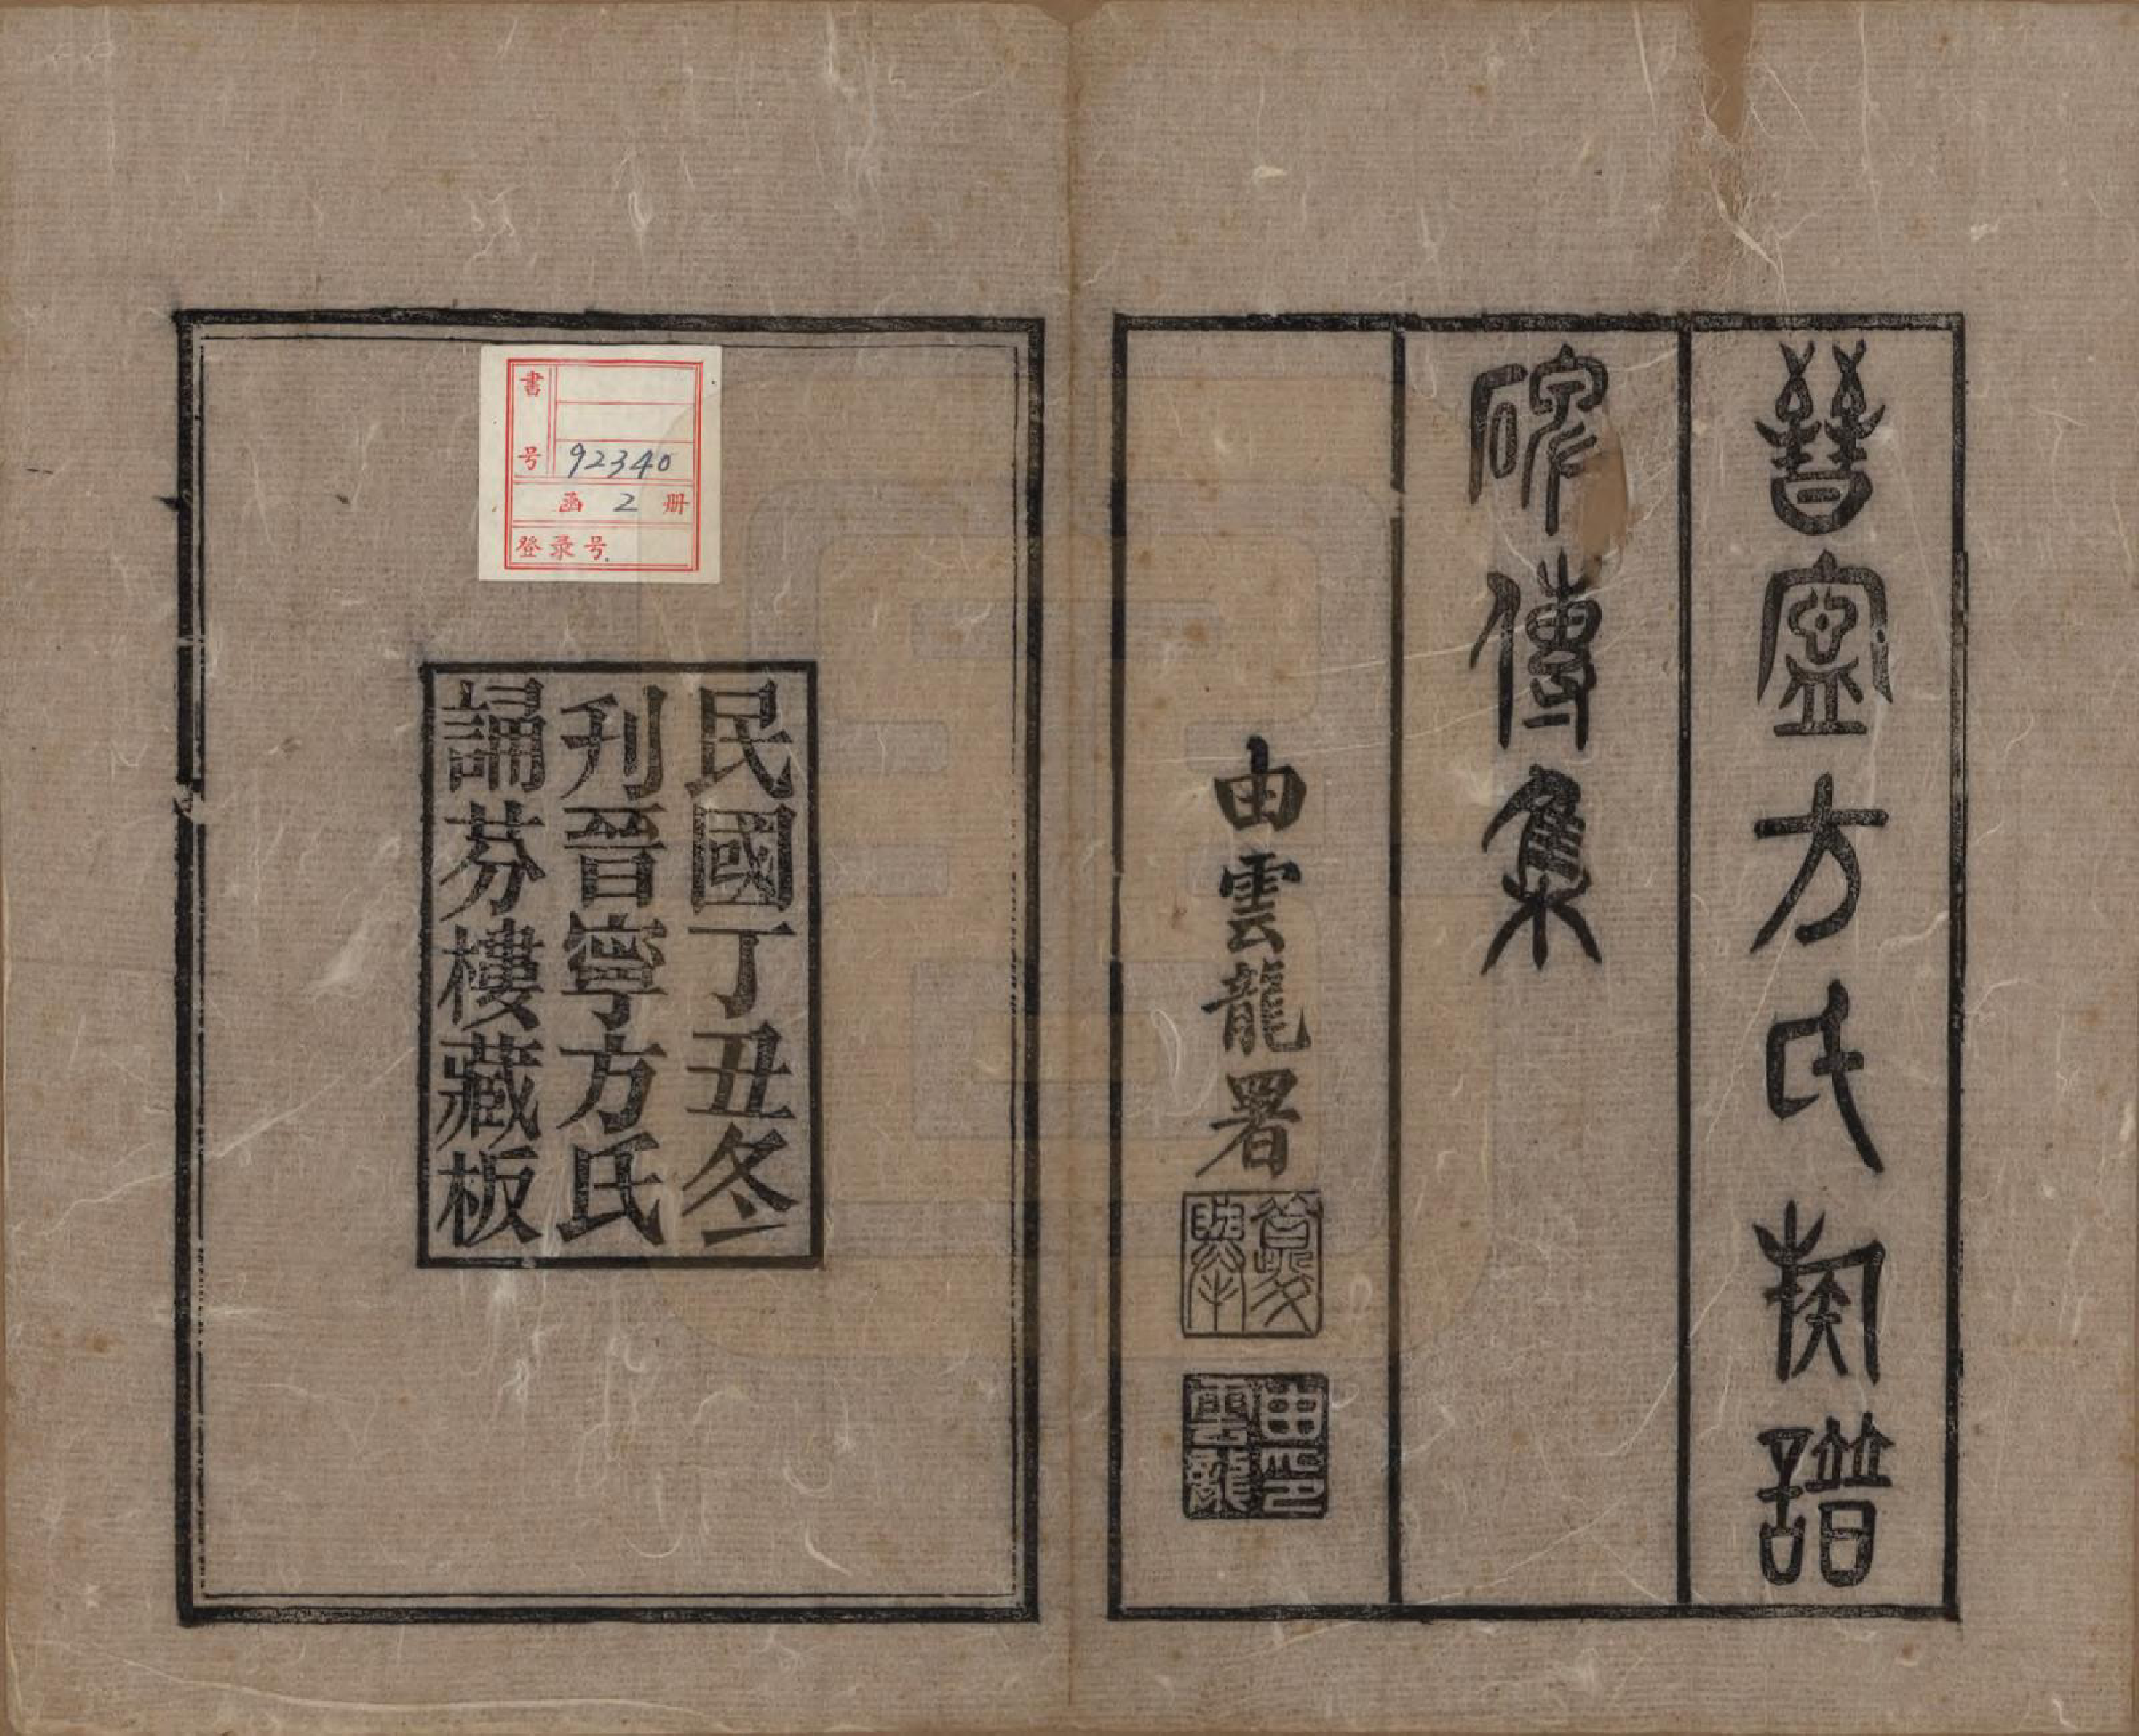 晉寧方氏族譜
碑傳集
由雲龍署
夔舉
由雲龍印
民國丁丑冬
刊晉寧方氏
誦芬樓藏板
書号 92340
函 2 册
登录号